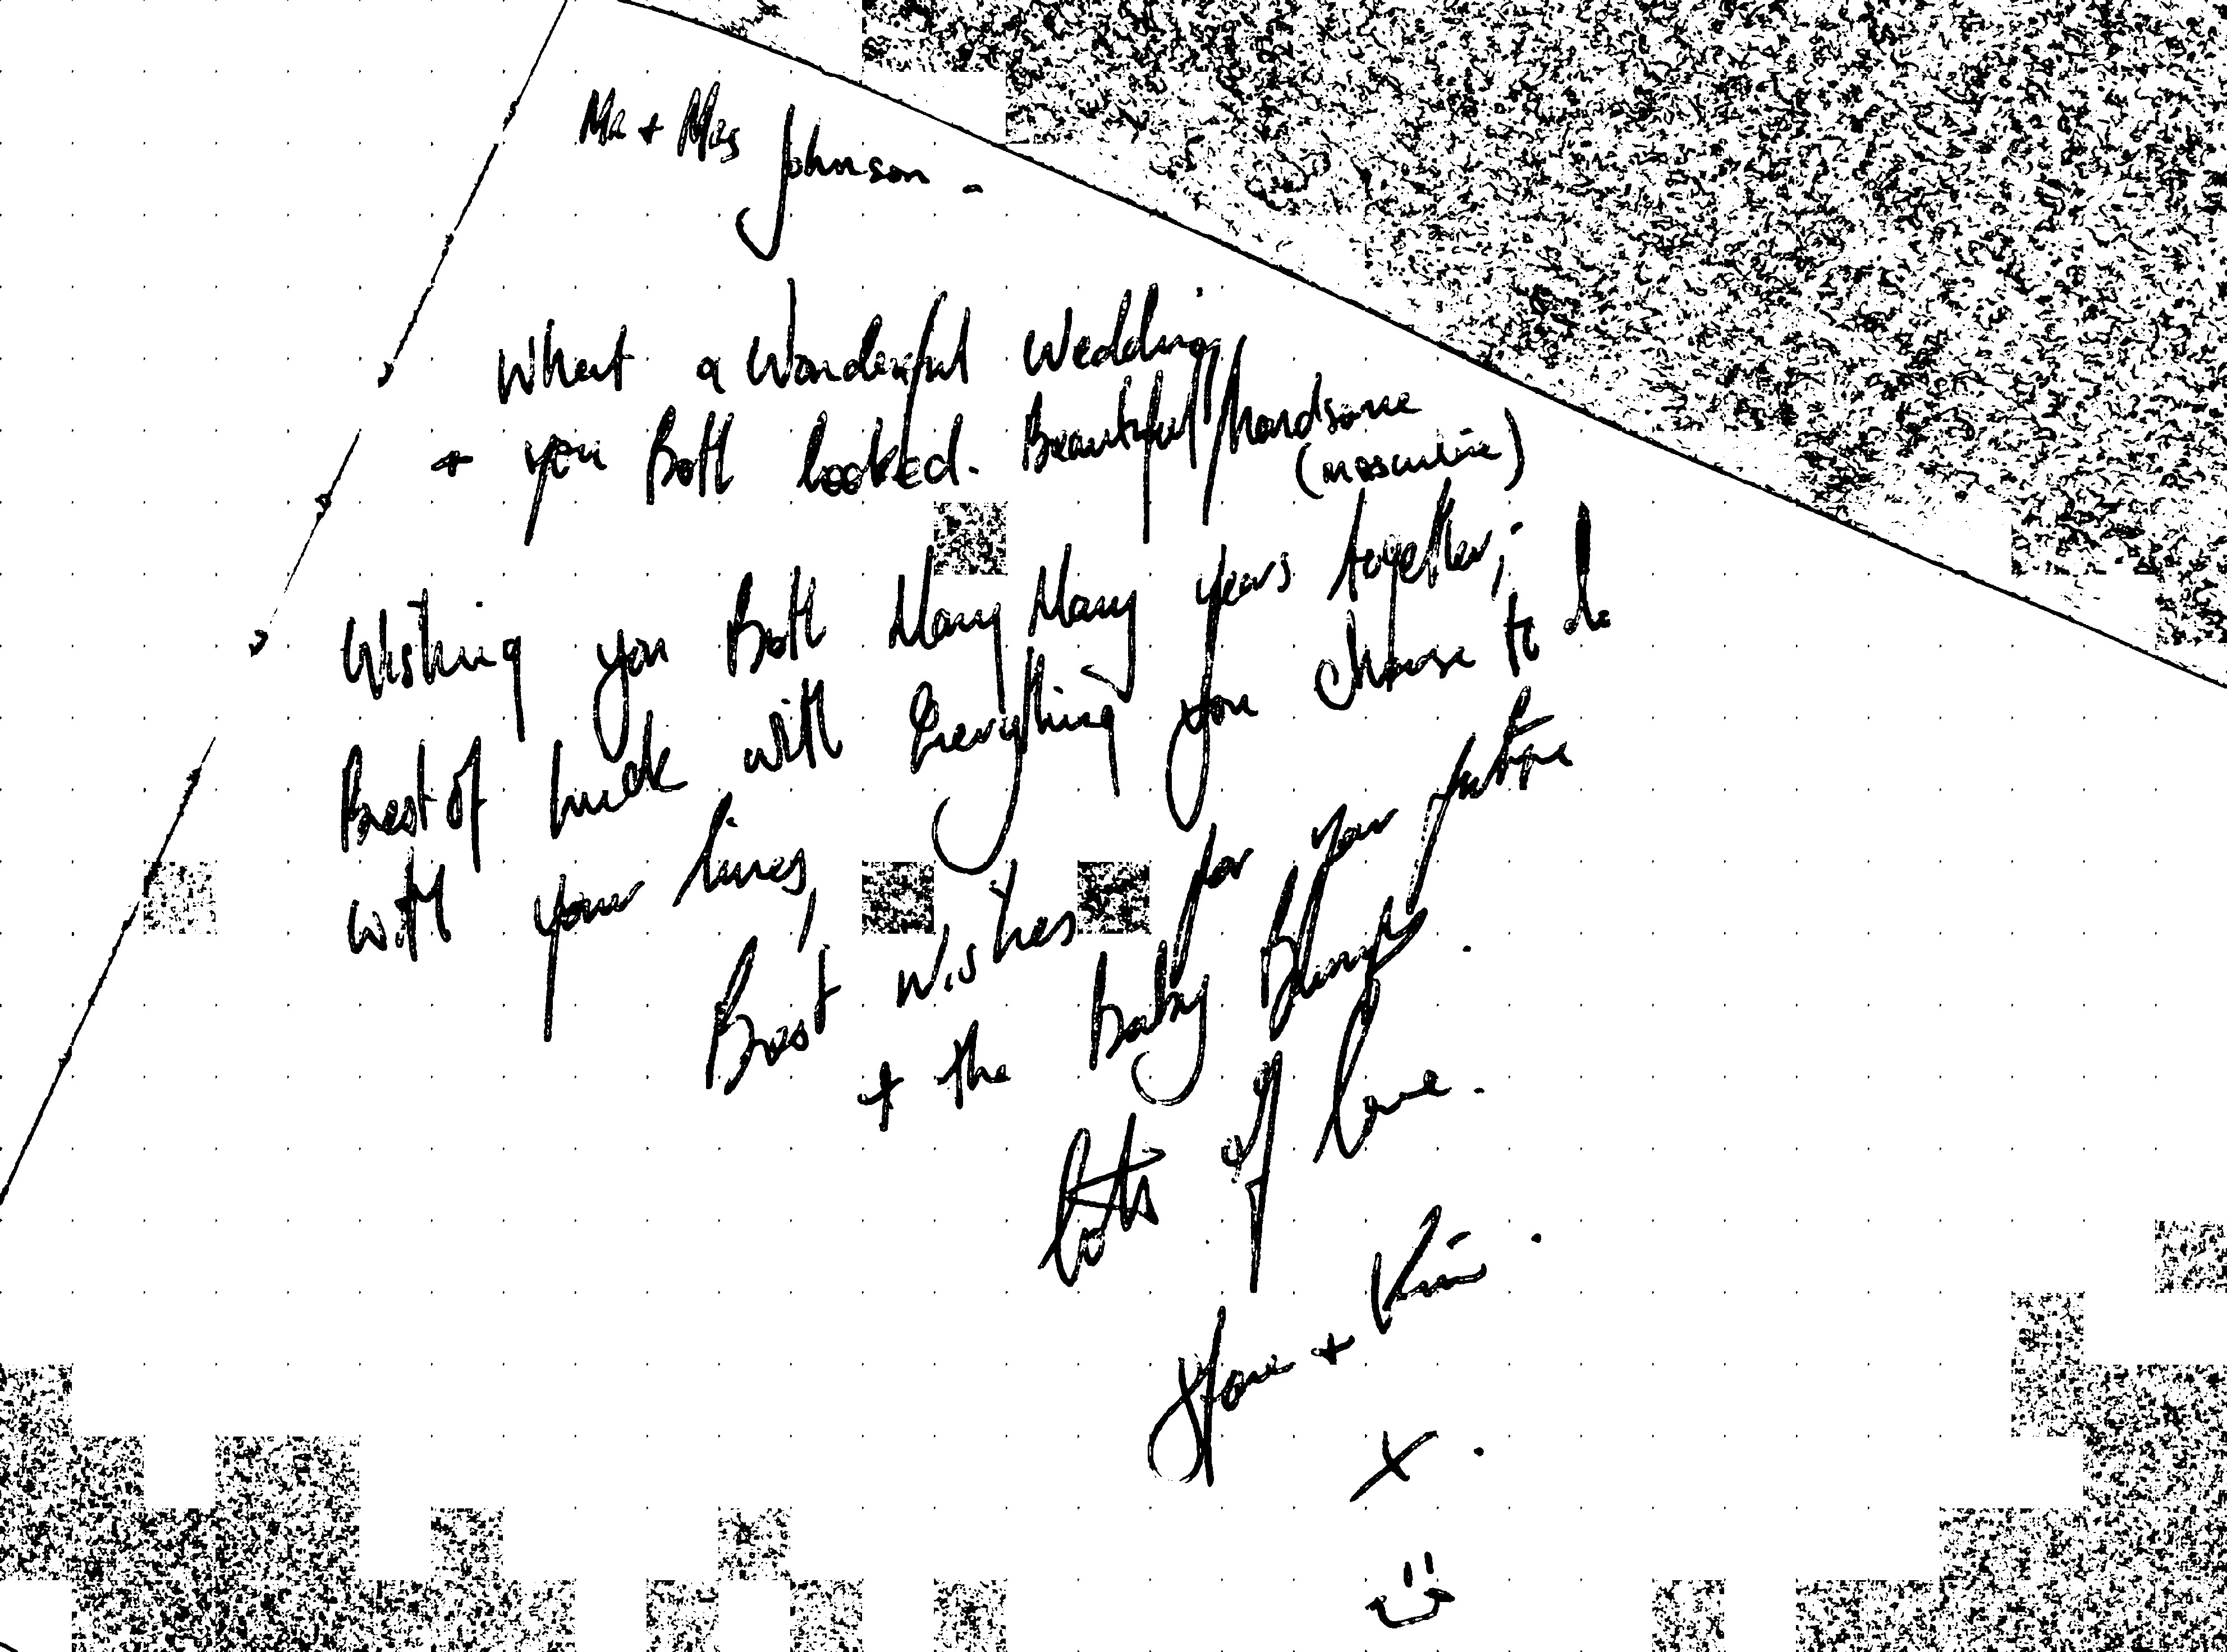 Mr + Mrs Johnson -
What a Wonderful Wedding
+ you Both looked. Beautiful/handsome
(masculine)
Wishing you Both Many Many years together,
Best of luck with Everything you choose to do
with your lives,
Best wishes for your future
+ the baby Bump.
lots of love.
+ Kim.
x.